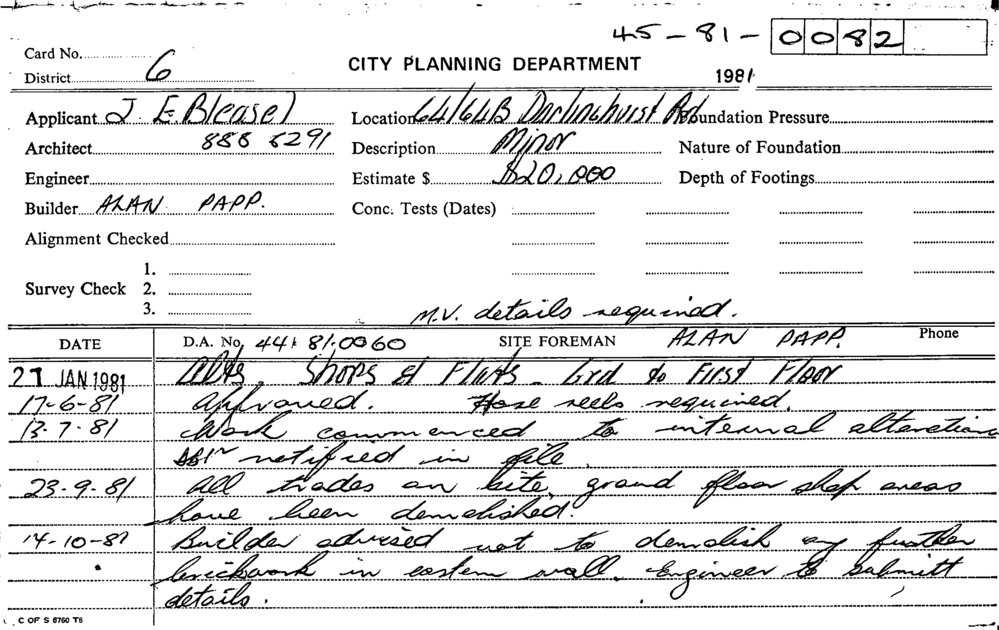 45-81-0082
Card No.
District 6
CITY PLANNING DEPARTMENT
1981
Applicant J. E. Blease
Location 64/64B Darlinghurst Rd
Foundation Pressure
Architect 888 6291
Description Minor
Nature of Foundation
Engineer
Estimate $ $20,000
Depth of Footings
Builder ALAN PAPP.
Conc. Tests (Dates)
Alignment Checked
1.
Survey Check 2.
3.
M.V. details required.
DATE D.A. No. 441 81.0060 SITE FOREMAN ALAN PAPP. Phone
21 JAN 1981 Alts, Shops & Flats - Grd to First Floor
17-6-81 Approved. Hose reels required.
13-7-81 Work commenced to internal alterations
notified in file.
23-9-81 All trades on site, ground floor shop areas
have been demolished.
14-10-81 Builder advised not to demolish any further
brickwork in eastern wall. Engineer to submitt
details.
C OF S 6760 T6